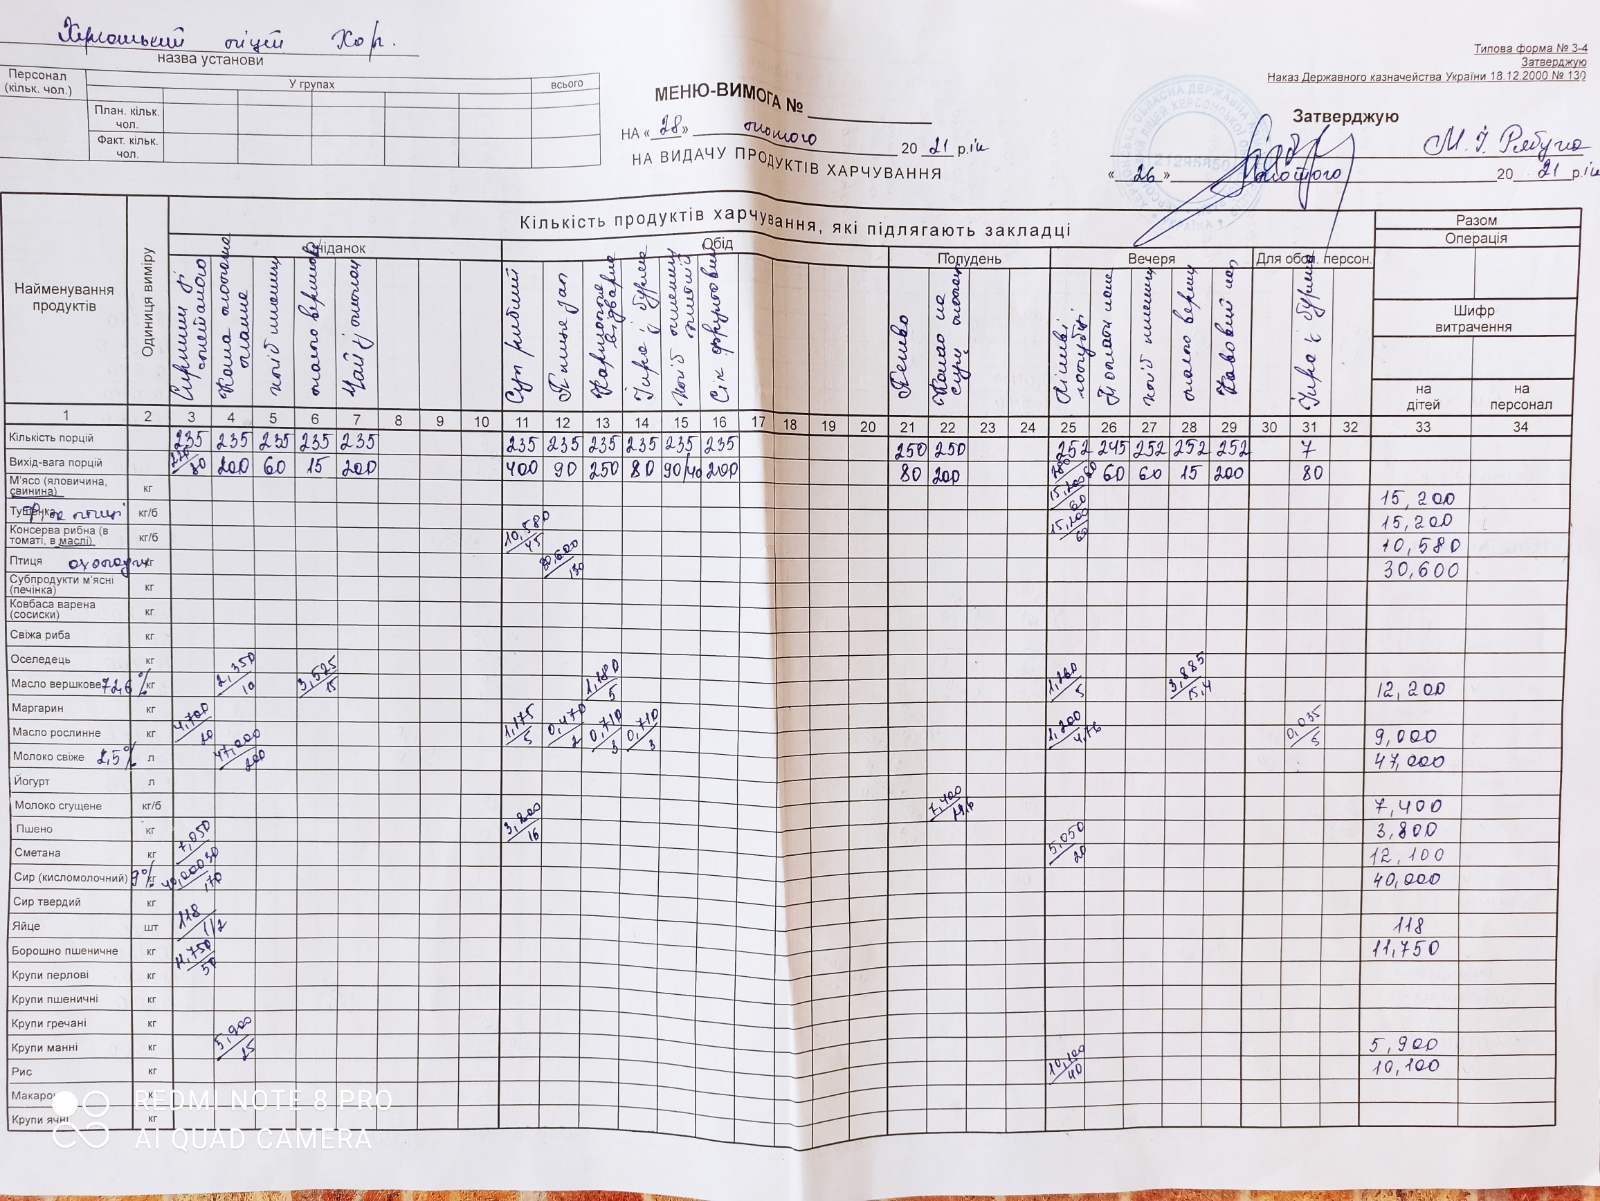 Херсонський ліцей Хор.
назва установи
Типова форма № 3-4
Затверджую
Наказ Державного казначейства України 18.12.2000 № 130
Персонал (кільк. чол.) У групах всього
План. кільк. чол.
Факт. кільк. чол.
МЕНЮ-ВИМОГА №
НА «28» лютого 20 21 рік
НА ВИДАЧУ ПРОДУКТІВ ХАРЧУВАННЯ
Затверджую
М. І. Рябуха
«26» лютого 20 21 рік
Найменування продуктів Одиниця виміру Кількість продуктів харчування, які підлягають закладці Разом
Операція
Сніданок Обід Полудень Вечеря Для обсл. персон.
Шифр витрачення
на дітей на персонал
Каша молочна манна хліб пшениц масло вершков Чай з молоком
Суп рибний Картопля відварна Ікра з буряка Сік фруктовий
Печиво Какао на згущ молоці
Ліниві голубці хліб пшениц масло верш Кавовий нап
Ікра з буряка
1 2 3 4 5 6 7 8 9 10 11 12 13 14 15 16 17 18 19 20 21 22 23 24 25 26 27 28 29 30 31 32 33 34
Кількість порцій 235 235 235 235 235 235 235 235 235 235 235 250 250 252 245 252 252 252 7
Вихід-вага порцій 80 200 60 15 200 400 90 250 80 90/40 200 80 200 60 60 15 200 80
М'ясо (яловичина, свинина) кг 15,200 60 15,200
Тушенка кг/б 15,200 60 15,200
Консерва рибна (в томаті, в маслі) кг/б 10,580 45 10,580
Птиця кг 30,600 130 30,600
Субпродукти м'ясні (печінка) кг
Ковбаса варена (сосиски) кг
Свіжа риба кг
Оселедець кг
Масло вершкове 72,6% кг 2,350 10 3,525 15 1,180 5 1,260 5 3,885 15,4 12,200
Маргарин кг
Масло рослинне кг 4,700 20 1,175 5 0,470 2 0,710 3 0,710 3 1,200 4,76 0,035 5 9,000
Молоко свіже 2,5% л 47,000 200 47,000
Йогурт л
Молоко сгущене кг/б 7,400 29,6 7,400
Пшено кг 3,800 16 3,800
Сметана кг 7,050 30 5,050 20 12,100
Сир (кисломолочний) 9% кг 40,000 170 40,000
Сир твердий кг
Яйце шт 118 1/2 118
Борошно пшеничне кг 11,750 50 11,750
Крупи перлові кг
Крупи пшеничні кг
Крупи гречані кг
Крупи манні кг 5,900 25 5,900
Рис кг 10,100 40 10,100
Макарон
Крупи ячні кг
REDMI NOTE 8 PRO
AI QUAD CAMERA